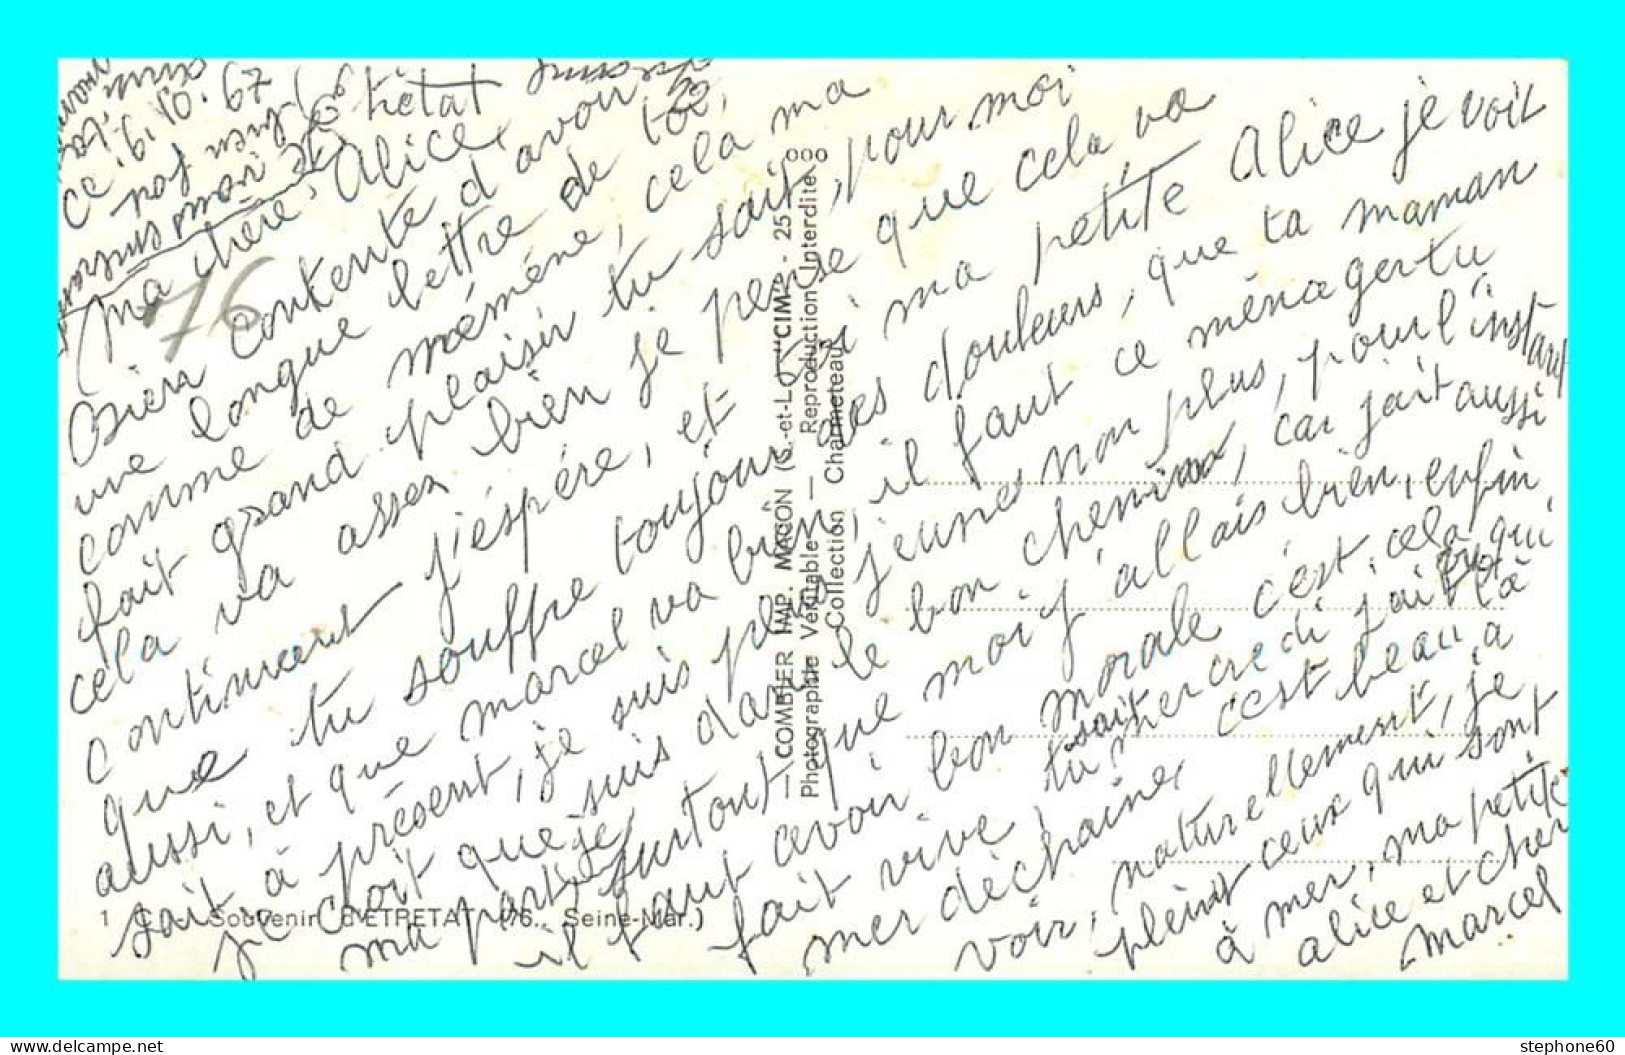 Etretat
ma chère Alice,
Bien contente d'avoir
une longue lettre de toi,
comme de mémène, cela ma
fait grand plaisir tu sait, pour moi
cela va assez bien je pense que cela va
continuent j'éspére, et si ma petite Alice je voit
que tu souffre toujour des douleurs, que ta maman
aussi, et que marcel va bien, il faut ce ménager tu
sait, à présent, je suis plus jeune non plus, pour l'instant
je croit que je suis dans le bon chemin, car jait aussi
ma part, surtout que moi j'allais bien, enfin
il faut avoir bon morale c'est cela qui
fait vivre, tu sait mercredi jait vu la
mer déchainé, c'est beau à
voir, naturellement, je
pleint ceux qui sont
à mer, ma petite
alice et cher
marcel
76
1 C — Souvenir d'ETRETAT (76.. Seine-Mar.)
— COMBIER IMP. MACON (S.-et-L.) "CIM" - 25
Photographie Véritable — Reproduction Interdite
Collection Charmeteau
stephone60